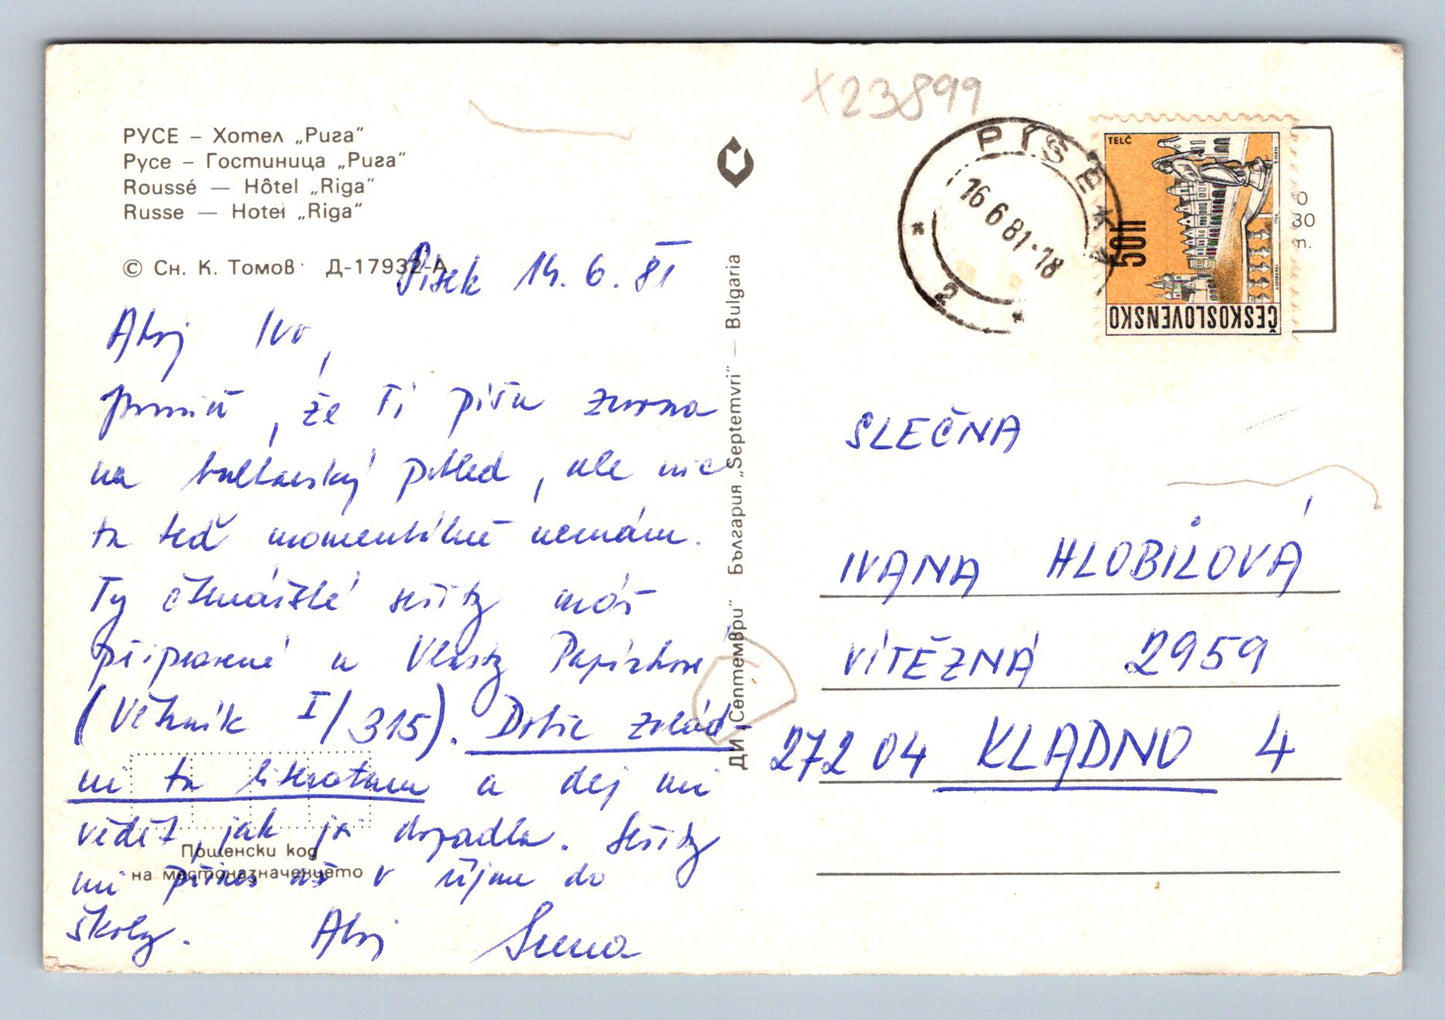 РУСЕ – Хотел „Рига“
Русе – Гостиница „Рига“
Roussé — Hôtel „Riga“
Russe — Hotel „Riga“
© Сн. К. Томов Д-17932-А
Písek 14. 6. 81
Ahoj Ivo,
promiň, že Ti píšu zrovna
na bulharský pohled, ale nic
tu teď momentálně nemám.
Ty čtenářské sešity máš
připravené u Vlasty Papírkové
(Větrník I/315). Dobře zvlád-
ni tu literaturu a dej mi
vědět, jak jsi dopadla. Sešity
mi přines až v říjnu do
školy. Ahoj
Пощенски код
на местоназначението
ДИ „Септември“ България „Septemvri“ — Bulgaria
X23899
PÍSEK 1
16.6.81-18
2
TELČ
50h
ČESKOSLOVENSKO
SLEČNA
IVANA HLOBILOVÁ
VÍTĚZNÁ 2959
272 04 KLADNO 4